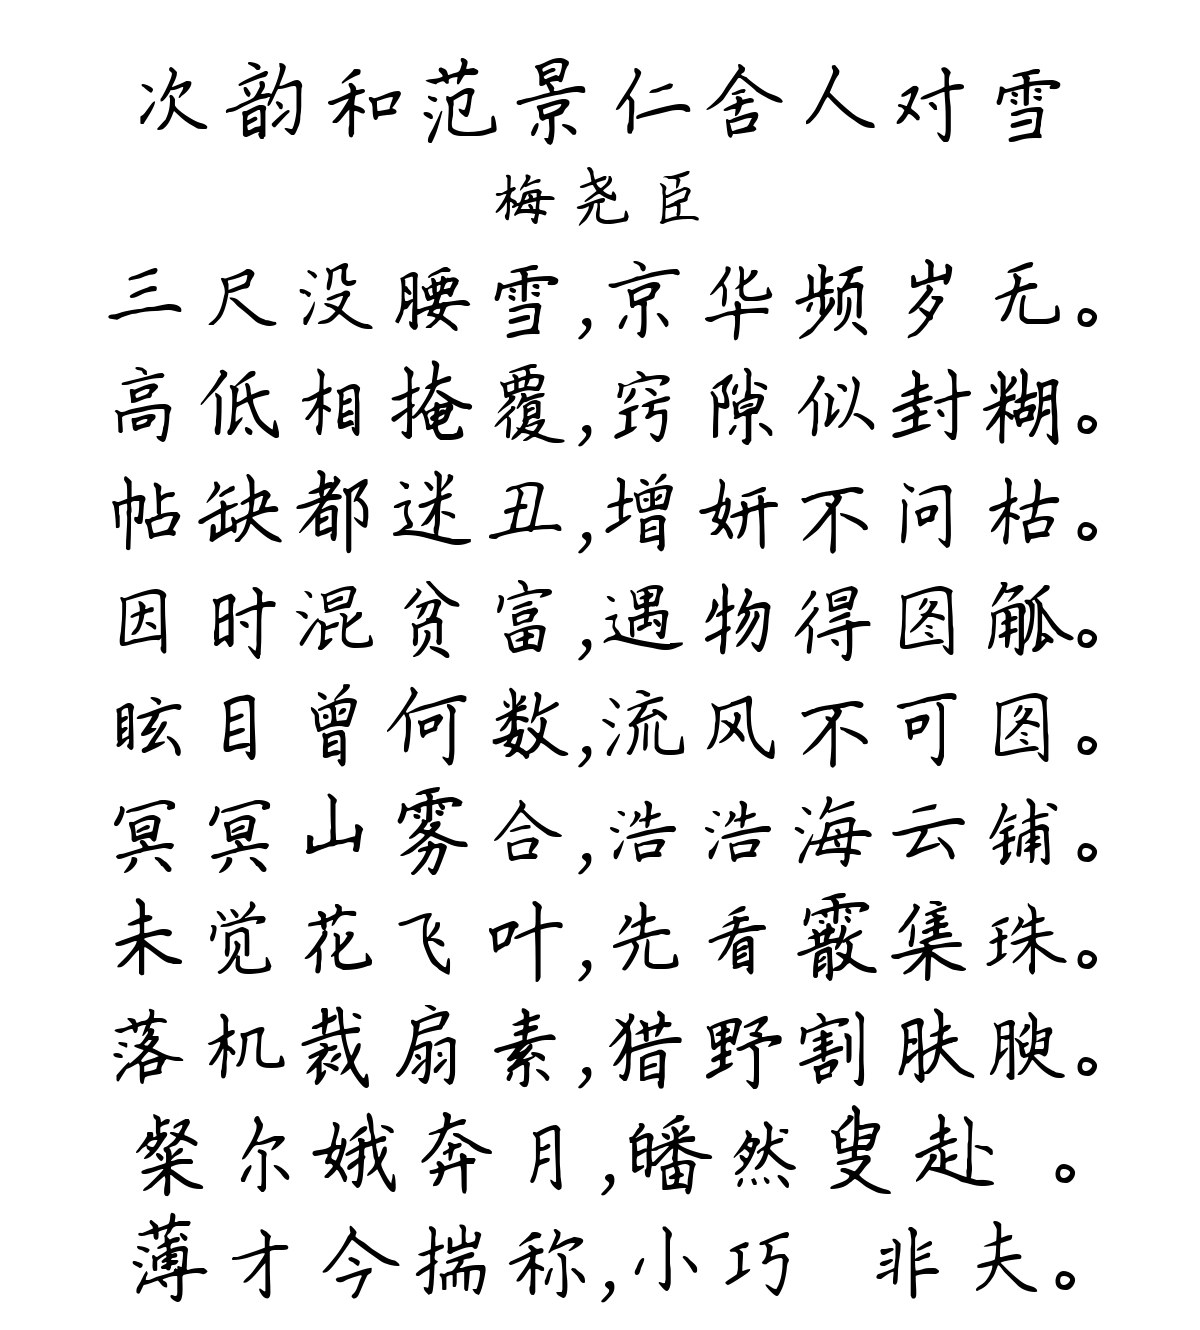 次韵和范景仁舍人对雪
梅尧臣
三尺没腰雪,京华频岁无。
高低相掩覆,窍隙似封糊。
帖缺都迷丑,增妍不问枯。
因时混贫富,遇物得图觚。
眩目曾何数,流风不可图。
冥冥山雾合,浩浩海云铺。
未觉花飞叶,先看霰集珠。
落机裁扇素,猎野割肤腴。
粲尔娥奔月,皤然叟赴 。
薄才今揣称,小巧 非夫。